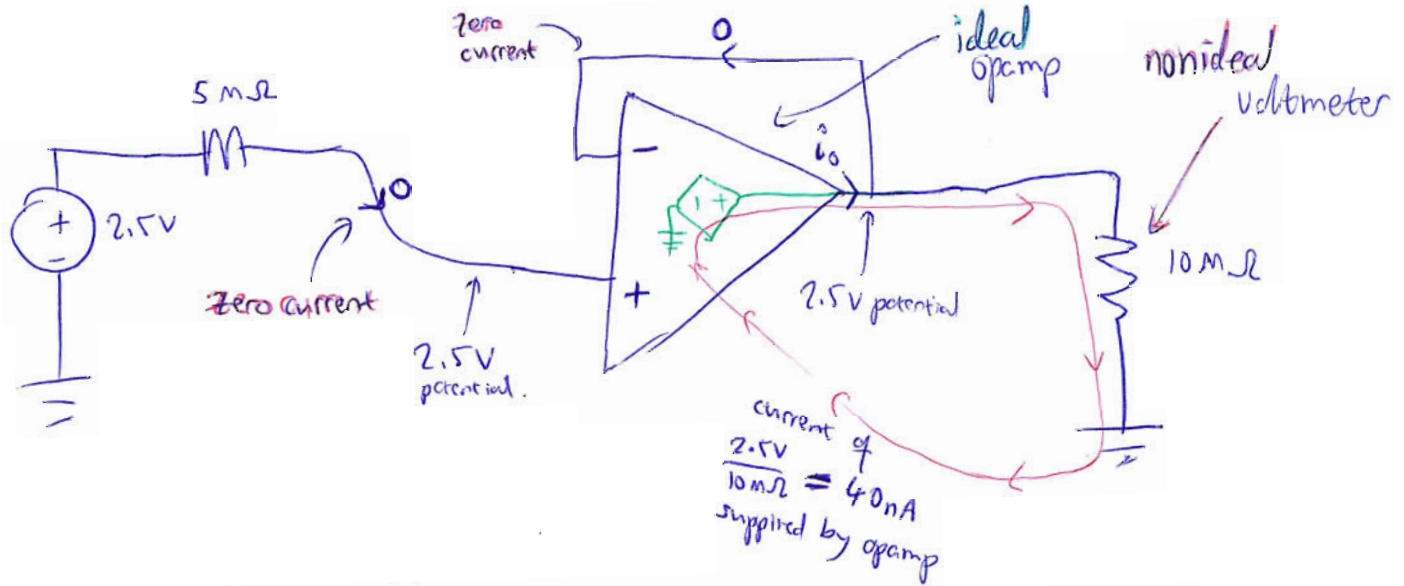 zero
current
0
ideal
opamp
nonideal
voltmeter
5 MΩ
-
i₀
0
+
-
2.5V
- +
10 MΩ
zero current
+
2.5V potential
2.5V
potential.
current of
2.5V
10MΩ
= 40nA
supplied by opamp